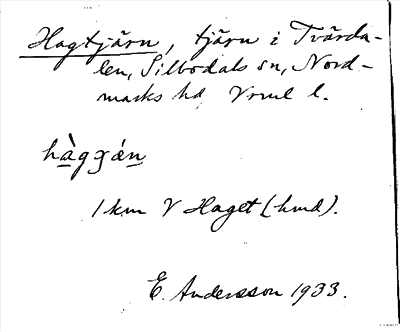 Hagtjärn, tjärn i Tvärda-
len, Silbodals sn, Nord-
marks hd Vrml l.
hàgɟǽn
1 km V Haget (hmd).
E. Andersson 1933.